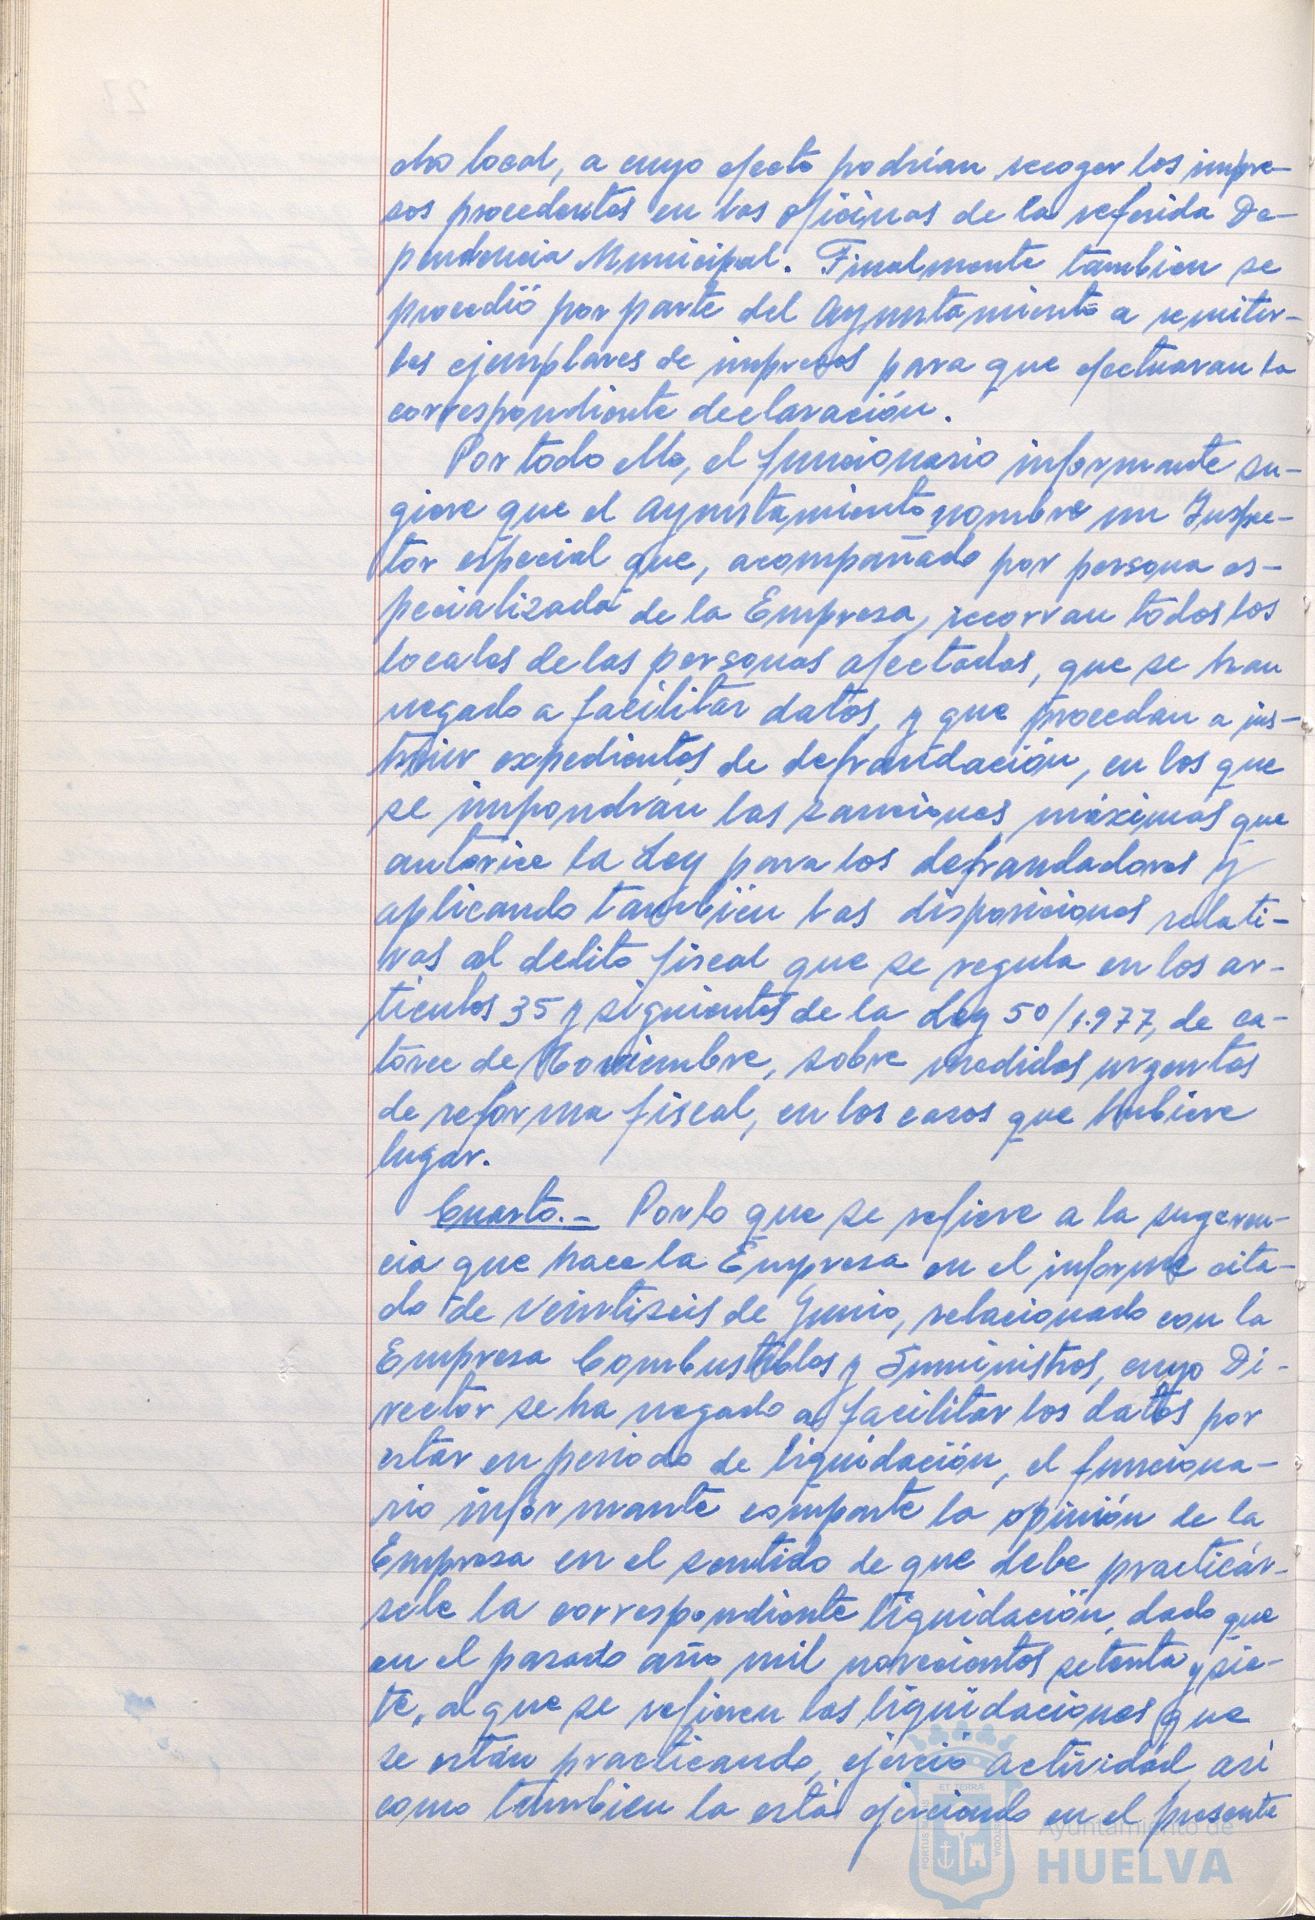 cho local, a cuyo efecto podrían recoger los impre-
sos procedentes en las oficinas de la referida De-
pendencia Municipal. Finalmente tambien se
procedió por parte del Ayuntamiento a remitir-
les ejemplares de impresos para que efectuaran la
correspondiente declaración.
Por todo ello, el funcionario informante su-
giere que el Ayuntamiento nombre un Inspec-
tor especial que, acompañado por persona es-
pecializada de la Empresa, recorran todos los
locales de las personas afectadas, que se han
negado a facilitar datos, y que procedan a ins-
truir expedientes de defraudación, en los que
se impondrán las sanciones máximas que
autorice la Ley para los defraudadores y
aplicando también las disposiciones relati-
vas al delito fiscal que se regula en los ar-
tículos 35 y siguientes de la Ley 50/1.977, de ca-
torce de Noviembre, sobre medidas urgentes
de reforma fiscal, en los casos que hubiere
lugar.
Cuarto.- Por lo que se refiere a la sugeren-
cia que hace la Empresa en el informe cita-
do de veintiseis de Junio, relacionado con la
Empresa Combustibles y Suministros, cuyo Di-
rector se ha negado a facilitar los datos por
estar en periodo de liquidación, el funciona-
rio informante comparte la opinión de la
Empresa en el sentido de que debe practicár-
sele la correspondiente liquidación, dado que
en el pasado año mil novecientos setenta y sie-
te, al que se refieren las liquidaciones que
se están practicando, ejerció actividad, así
como tambien la está ejerciendo en el presente
PORTUS MARIS
ET TERRÆ
CUSTODIA
Ayuntamiento de
HUELVA
27